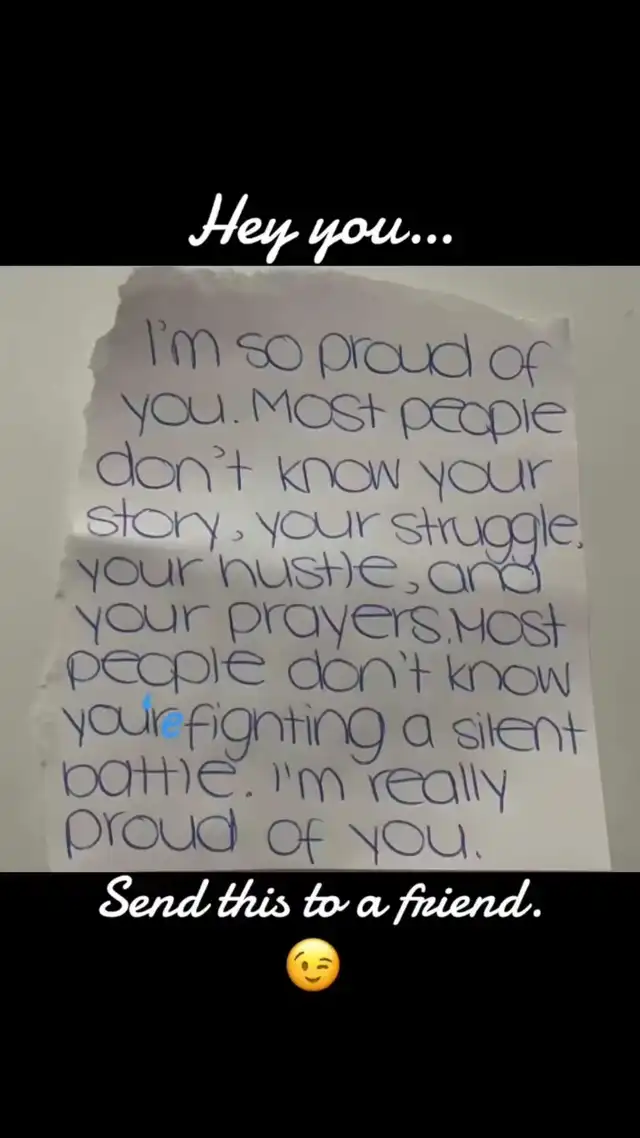 Hey you...
I'm so proud of
you. Most people
don't know your
story, your struggle,
your hustle, and
your prayers. Most
people don't know
you're fighting a silent
battle. I'm really
proud of you.
Send this to a friend.
😉